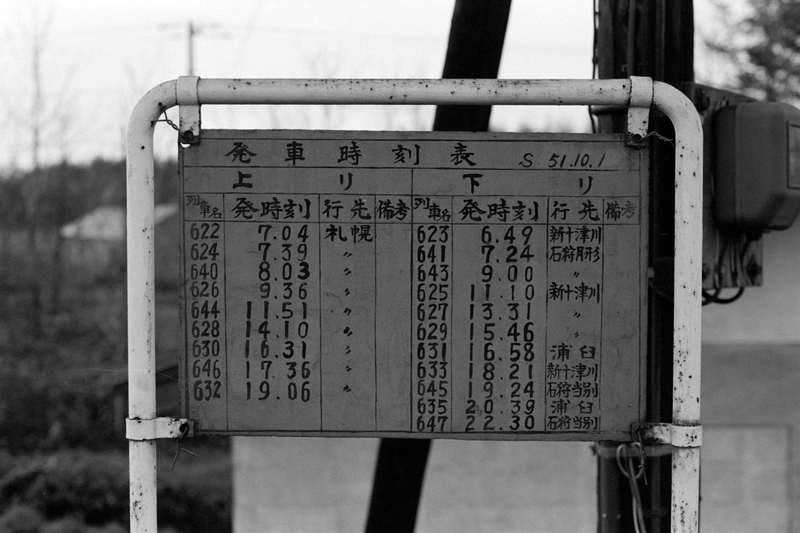 発車時刻表 S.51.10.1
上リ 下リ
列車名 発時刻 行先 備考 列車名 発時刻 行先 備考
622 7.04 札幌 623 6.49 新十津川
624 7.39 〃 641 7.24 石狩月形
640 8.03 〃 643 9.00 〃
626 9.36 〃 625 11.10 新十津川
644 11.51 〃 627 13.31 〃
628 14.10 〃 629 15.46 〃
630 16.31 〃 631 16.58 浦臼
646 17.36 〃 633 18.21 新十津川
632 19.06 〃 645 19.24 石狩当別
635 20.39 浦臼
647 22.30 石狩当別